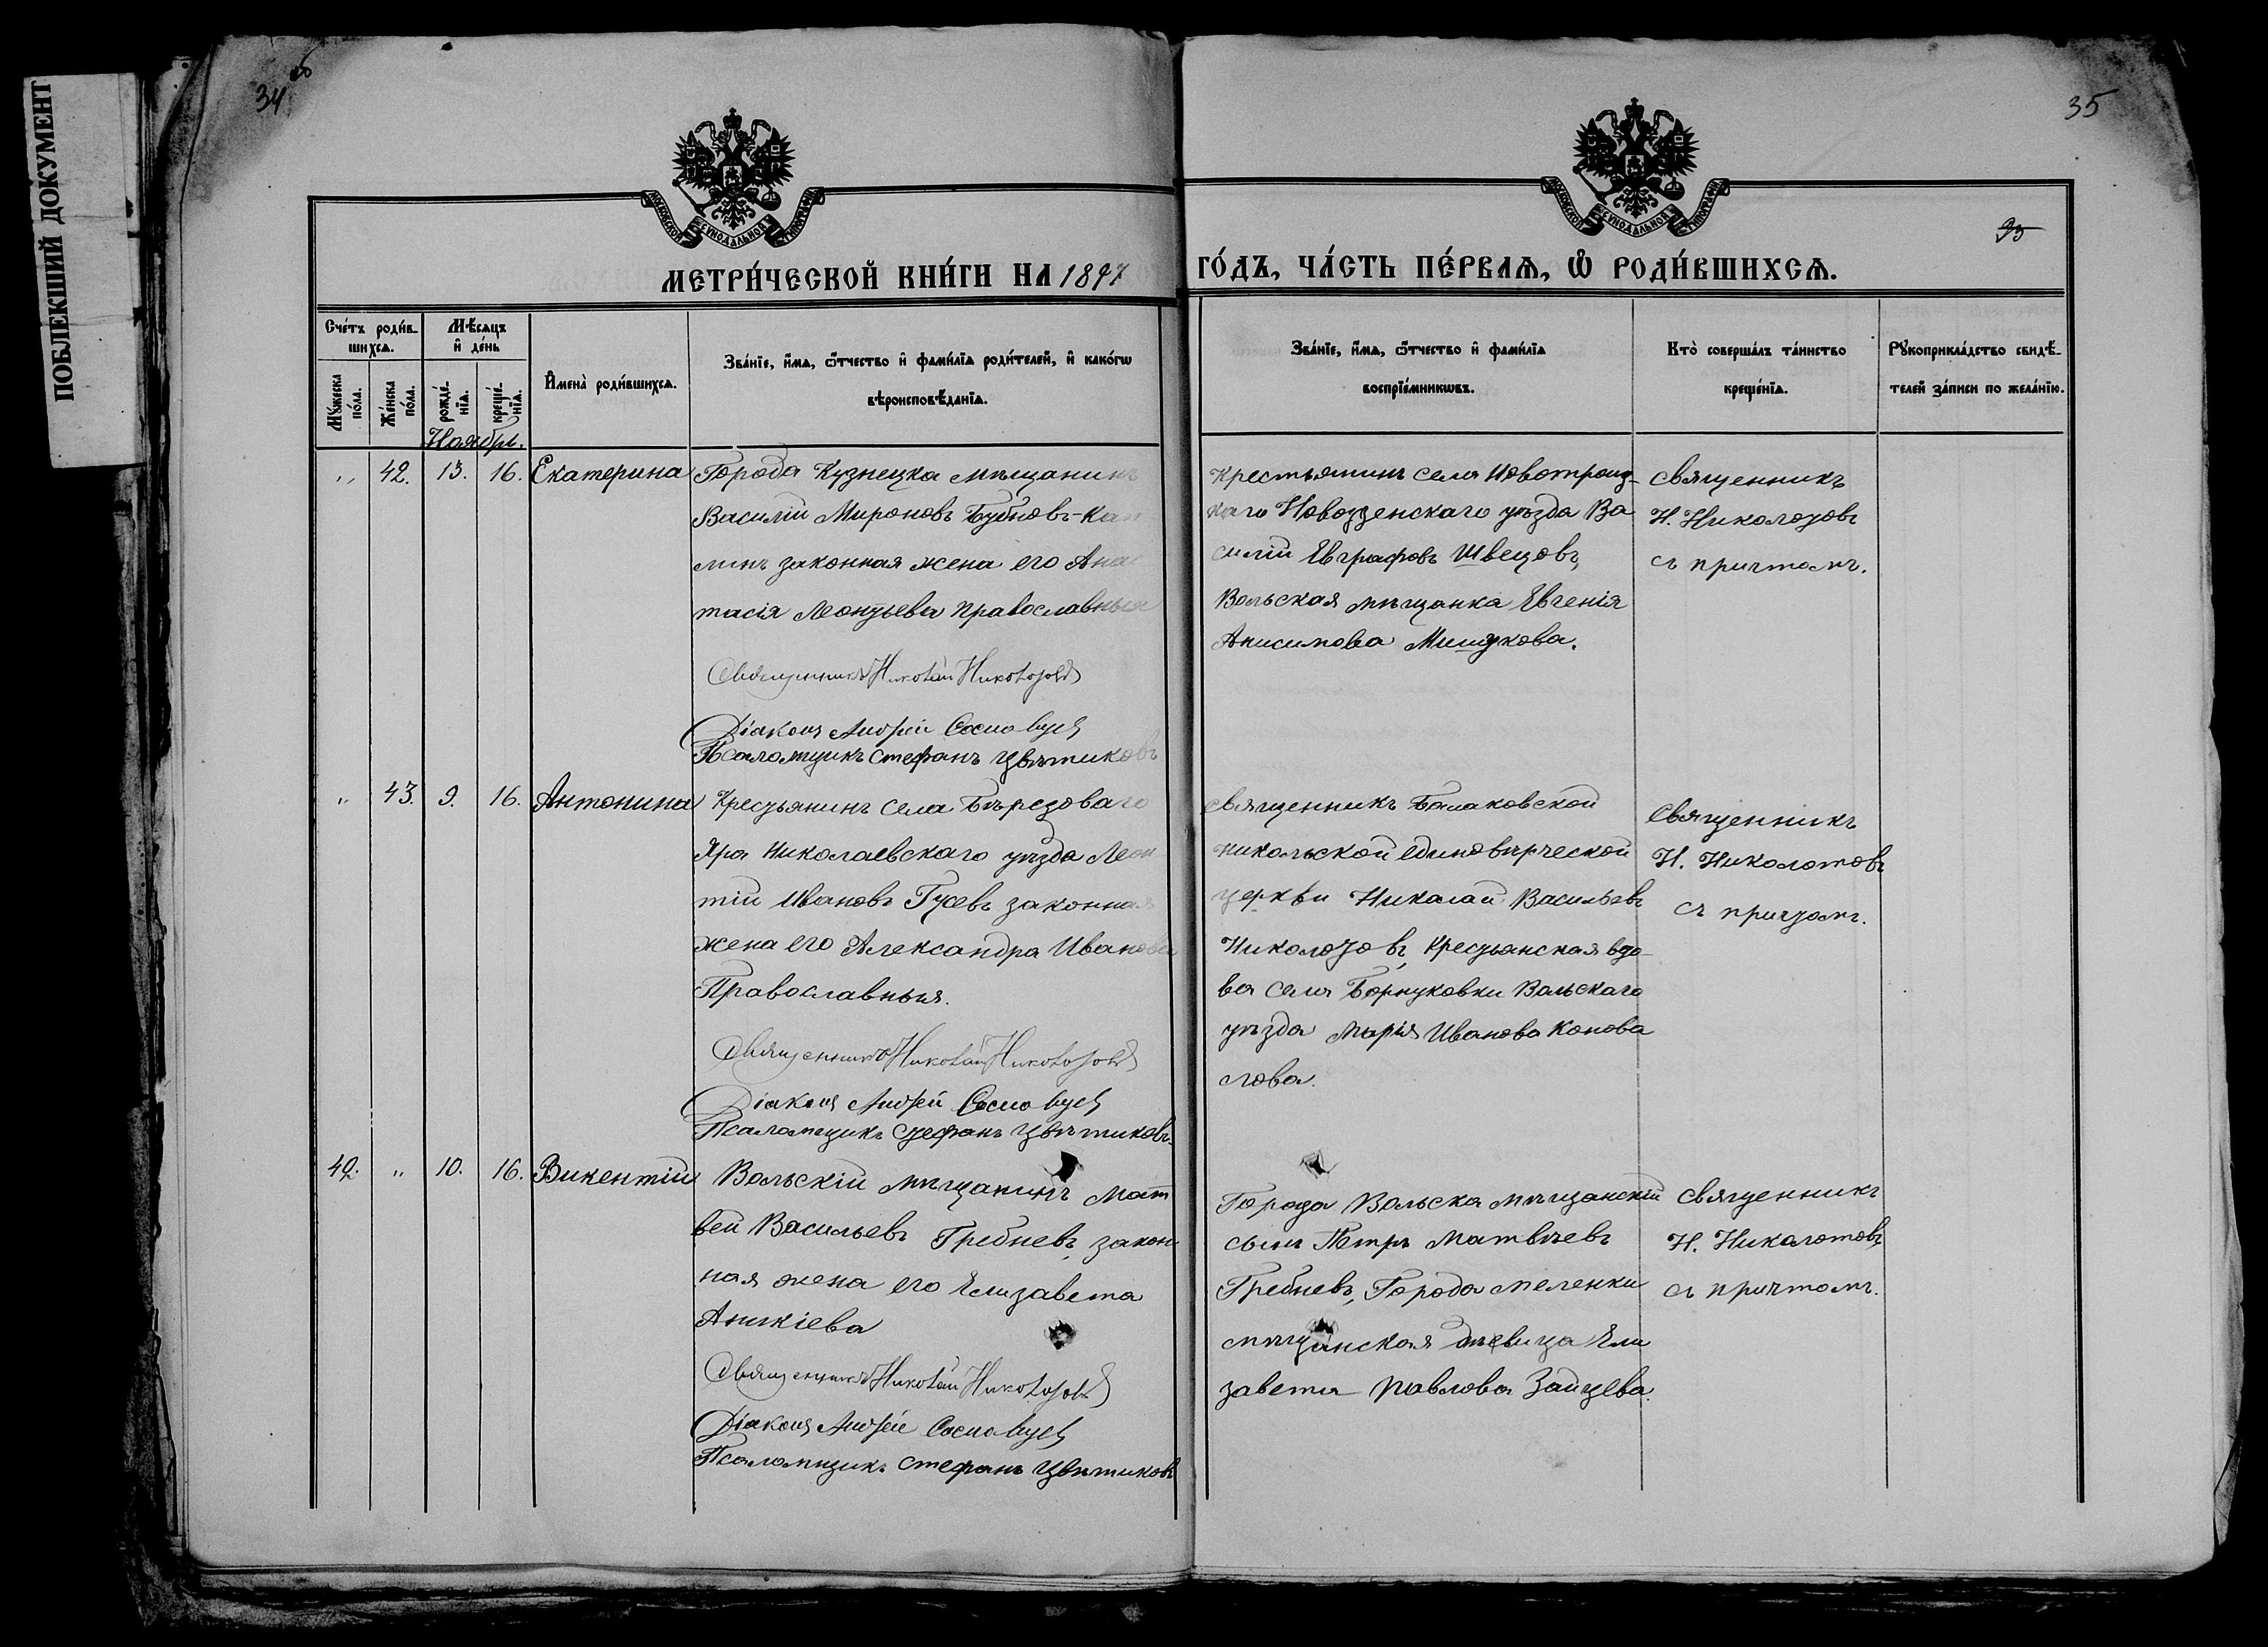 ПОБЛЕКШИЙ ДОКУМЕНТ
34 об
35
35
МОСКОВСКОЙ СѴНОДАЛЬНОЙ ТИПОГРАФІИ
МОСКОВСКОЙ СѴНОДАЛЬНОЙ ТИПОГРАФІИ
МЕТРИ́ЧЕСКОЙ КНИ́ГИ НА 1897
ГО́ДЪ, ЧА́СТЬ ПЕ́РВАѦ, Ѿ РОДИ́ВШИХСѦ.
Сче́тъ роди́в-
шихсѧ.
Мѣ́сѧцъ
и҆ де́нь
Мꙋ́жеска
по́ла.
Же́нска
по́ла.
рожде́-
нїѧ.
креще́-
нїѧ.
И҆мена̀ роди́вшихсѧ.
Зва́нїе, и҆́мѧ, ѻ҆́тчество и҆ фами́лїѧ роди́телей, и҆ како́гѡ
вѣроисповѣ́данїѧ.
Зва́нїе, и҆́мѧ, ѻ҆́тчество и҆ фами́лїѧ
воспрїе́мникѡвъ.
Кто̀ соверша́лъ та́инство
креще́нїѧ.
Рꙋкоприкла́дство свидѣ́-
телей за́писи по жела́нїю.
Ноябрь.
„ 42. 13. 16. Екатерина
Города Кузнецка мѣщанинъ
Василій Мироновъ Бубновъ-Кал
линъ законная жена его Анас
тасія Леонтьева православныя
Священникъ Николай Николотовъ
Діаконъ Андрей
Псаломщикъ Стефанъ Цвѣтиковъ
Крестьянинъ села Новотроиц-
каго Новоузенскаго уѣзда Ва
силій Евграфовъ Швецовъ,
Вольская мѣщанка Евгенія
Анисимова
Священникъ
Н. Николотовъ
съ причтомъ.
„ 43. 9. 16. Антонина
Крестьянинъ села Бѣрезоваго
Яра Николаевскаго уѣзда Леон
тій Ивановъ Гусевъ законная
жена его Александра Иванова
Православныя.
Священникъ Николай Николотовъ
Діаконъ Андрей
Псаломщикъ Стефанъ Цвѣтиковъ
Священникъ Балаковской
Никольской единовѣрческой
церкви Николай Васильевъ
Николотовъ, крестьянская вдо-
ва села Барнуковки Вольскаго
уѣзда Марія Иванова Конова
лова.
Священникъ
Н. Николотовъ
съ причтомъ.
42. „ 10. 16. Викентій
Вольскій мѣщанинъ Мат
вей Васильевъ Гребневъ, закон
ная жена его Елизавета
Аникіева
Священникъ Николай Николотовъ
Діаконъ Андрей
Псаломщикъ Стефанъ Цвѣтиковъ
Города Вольска мѣщанскій
сынъ Петръ Матвѣевъ
Гребневъ, Города Меленки
мѣщанская дѣвица Ели
завета Павлова Зайцева.
Священникъ
Н. Николотовъ
съ причтомъ.